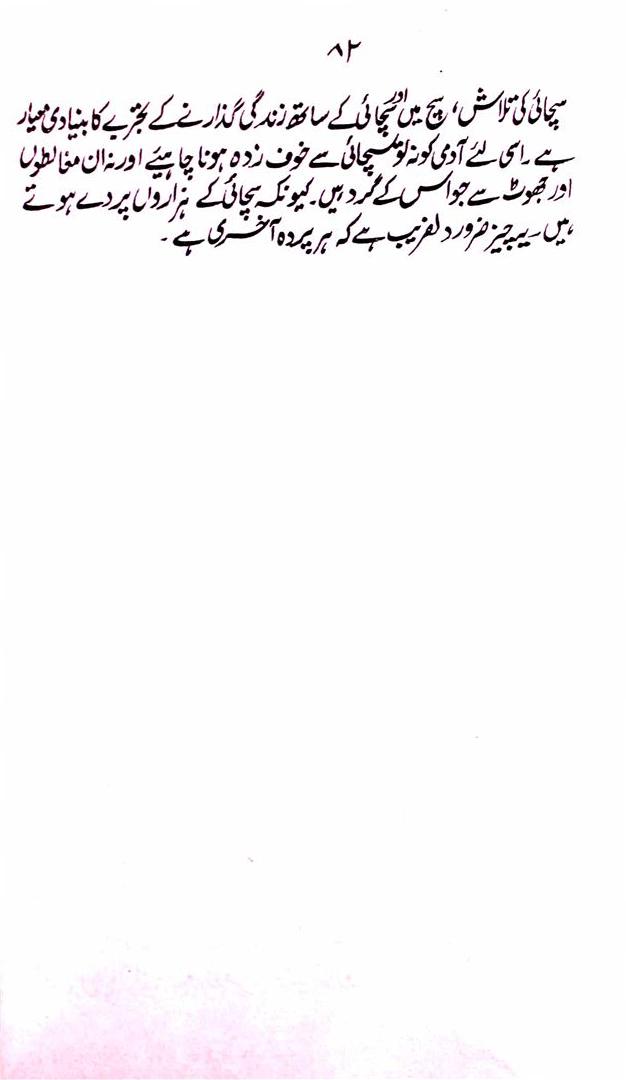 ۸۲
سچائی کی تلاش، سچ میں اور سچائی کے ساتھ زندگی گذارنے کے تجربے کا بنیادی معیار
ہے ۔ اسی لئے آدمی کو نہ تو سچائی سے خوف زدہ ہونا چاہیئے اور نہ ان مغالطوں
اور جھوٹ سے جو اس کے گرد ہیں۔ کیونکہ سچائی کے ہزاروں پردے ہوتے
ہیں ۔ یہ چیز ضرور دلفریب ہے کہ ہر پردہ آخری ہے ۔